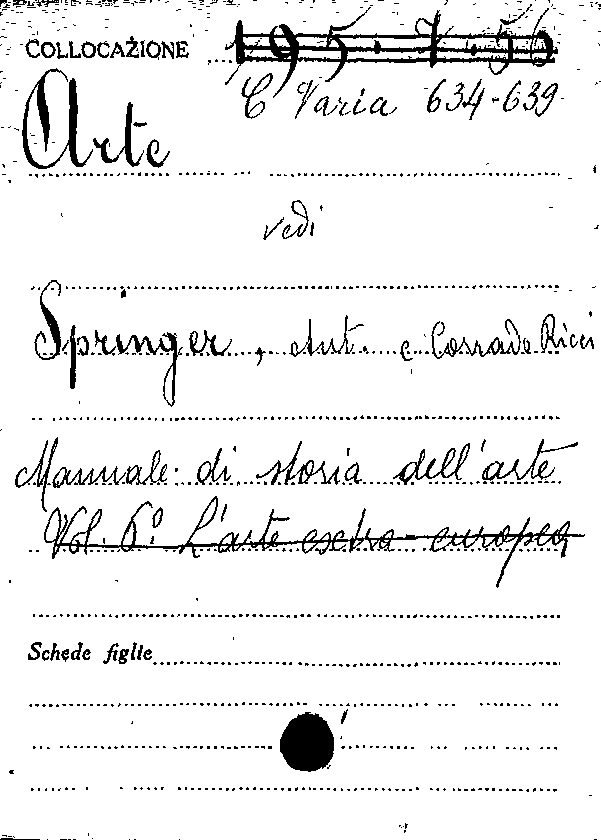 COLLOCAZIONE 195.7.50
C Varia 634-639
Arte
vedi
Springer, Ant. e Corrado Ricci
Manuale di storia dell'arte
Vol. 6º L'arte esctra-europea
Schede figlie